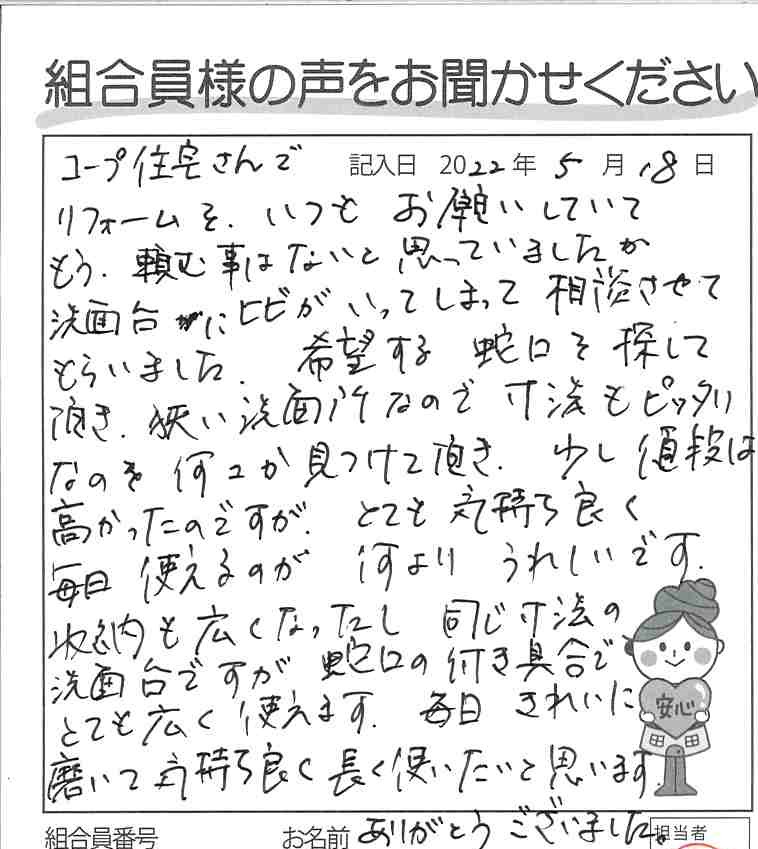 組合員様の声をお聞かせください
コープ住宅さんで 記入日 2022年 5月 18日
リフォームを、いつも お願いしていて
もう、頼む事はないと思っていましたが
洗面台にヒビがいってしまって 相談させて
もらいました。 希望する 蛇口を探して
頂き、狭い洗面所なので 寸法もピッタリ
なのを 何コか見つけて頂き、 少し値段は
高かったのですが、 とても 気持ち良く
毎日 使えるのが 何より うれしいです。
収納も広くなったし 同じ寸法の
洗面台ですが 蛇口の付き具合で
とても広く使えます。 毎日 きれいに
磨いて気持ち良く長く使いたいと思います
安心
組合員番号 お名前 ありがとうございました。 担当者